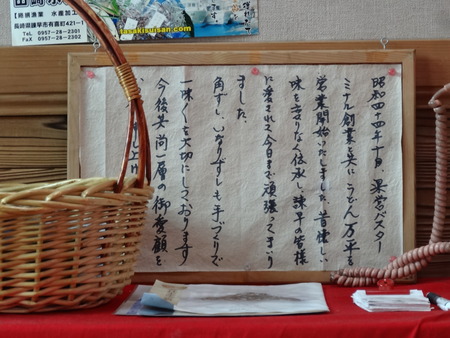 【時桃漁業 水産加工】
長崎県諫早市有喜町421-1
TeL 0957-28-2301
FaX 0957-28-2302
sasakisuisan.com
昭和四十四年十月、県営バスター
ミナル創業と共に うどん万平も
営業開始いたしました。昔懐しい
味を変りなく伝承し、諫早の皆様
に愛されて今日まで頑張ってまいり
ました。
角ずし、いなりずしも手づくりで
一味くを大切にしております
今後共尚一層の御愛顧を
し上げ